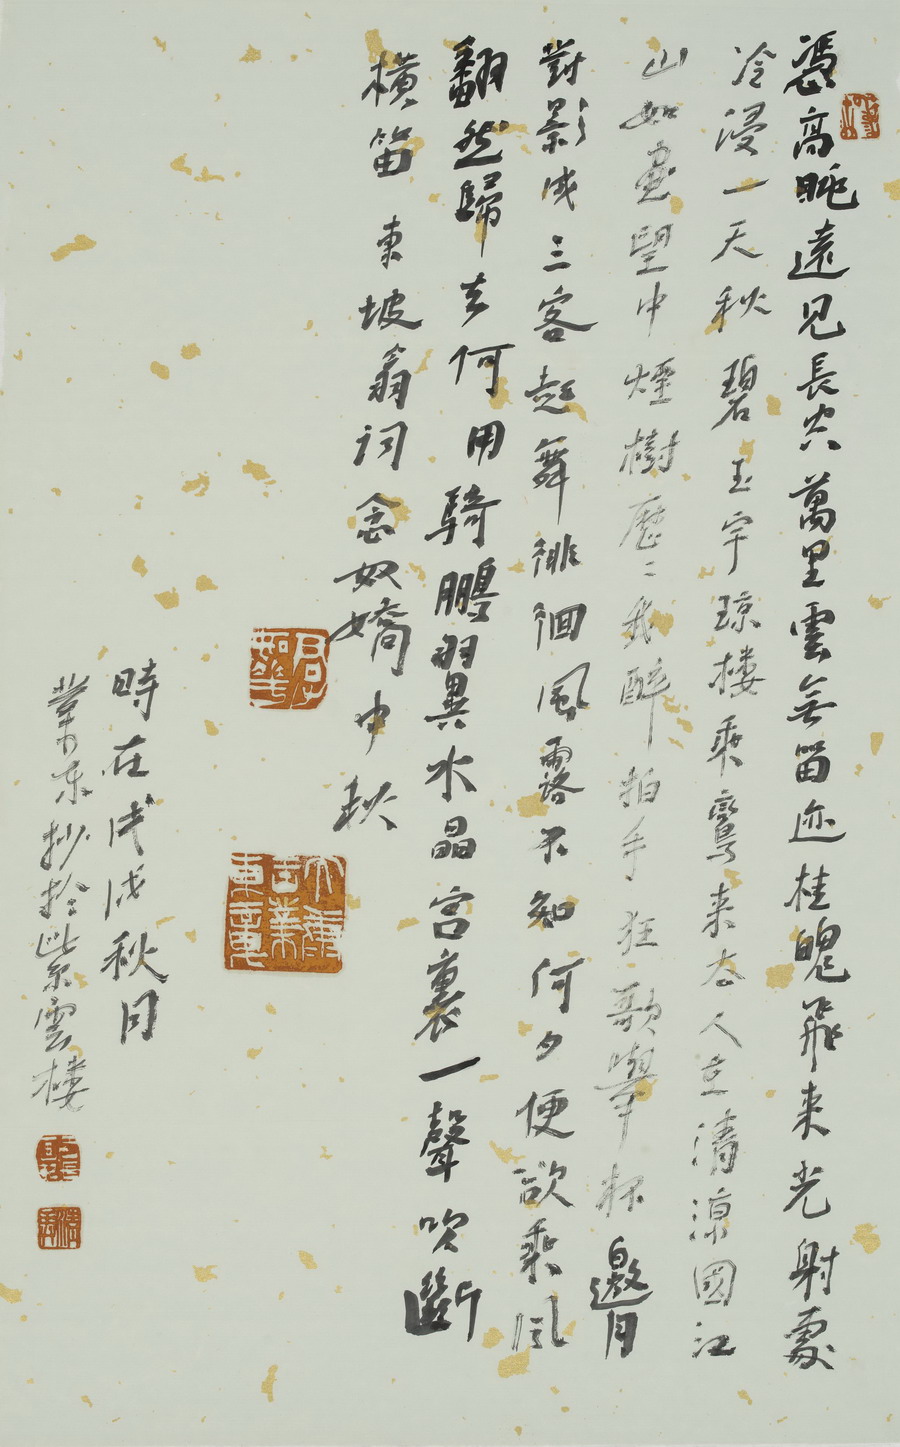 憑高眺遠見長空萬里雲無留迹桂魄飛來光射處
冷浸一天秋碧玉宇琼楼乘鸞来去人在清涼國江
山如畫望中煙樹歷〻我醉拍手狂歌舉杯邀月
對影成三客起舞徘徊風露下不知何夕便欲乘風
翻然歸去何用騎鵬翼水晶宮裏一聲吹斷
橫笛 東坡翁词念奴嬌中秋
時在戊戌秋月
業东抄於紫雲楼